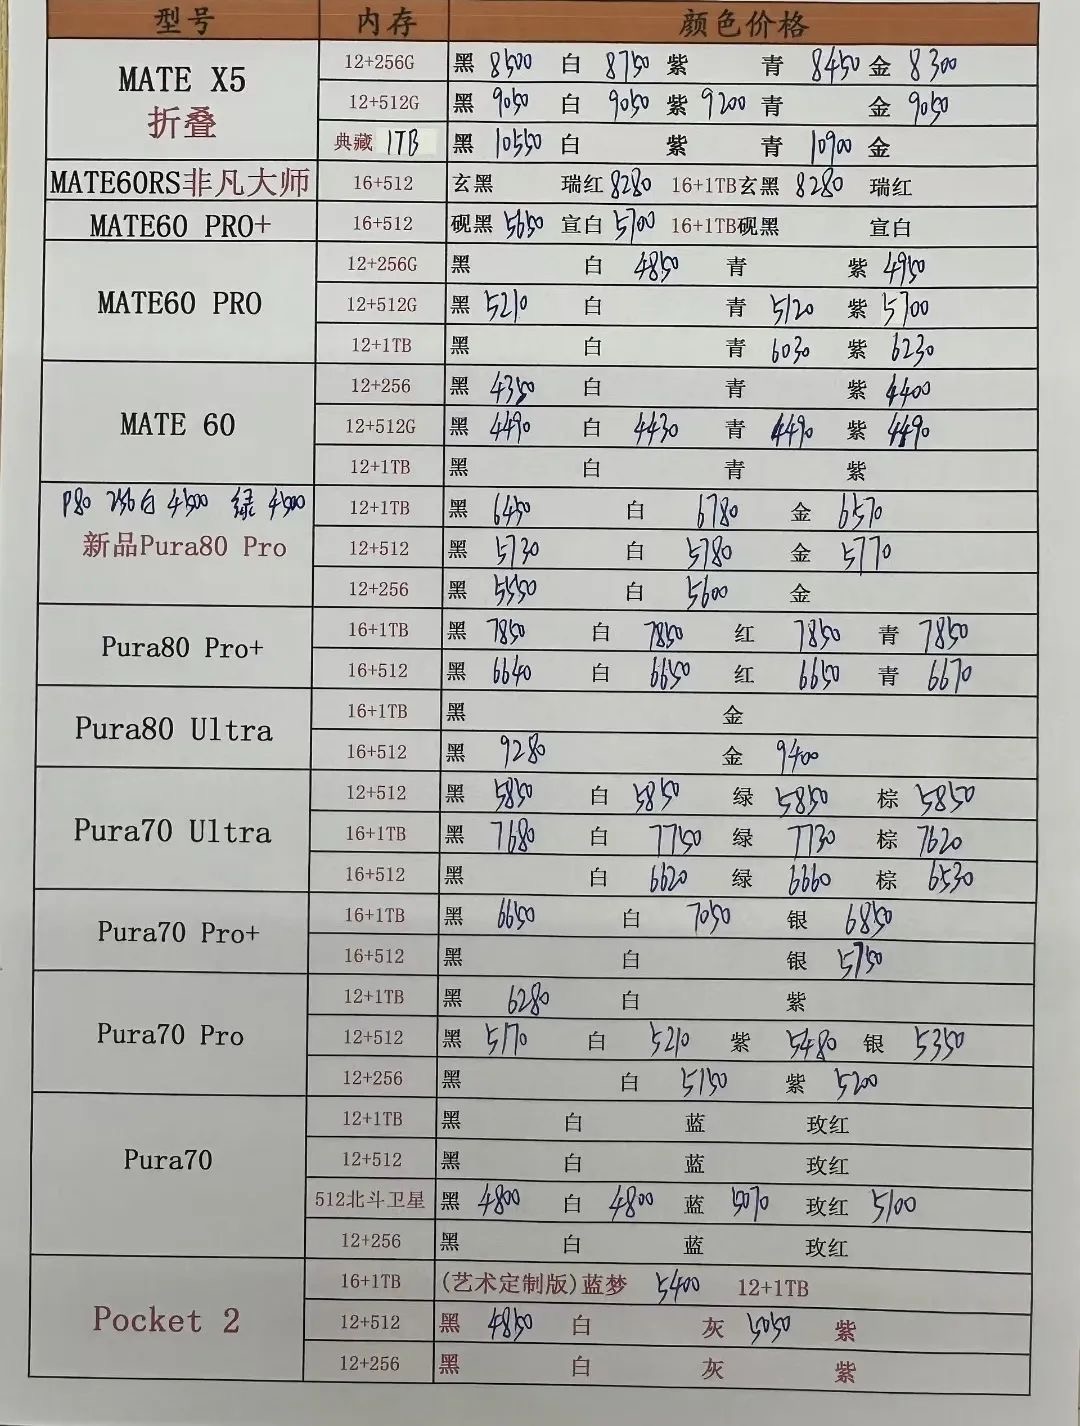 型号 内存 颜色价格
MATE X5 折叠
12+256G 黑 8500 白 8750 紫 青 8450 金 8300
12+512G 黑 9050 白 9050 紫 9200 青 金 9050
典藏 1TB 黑 10550 白 紫 青 10900 金
MATE60RS非凡大师 16+512 玄黑 瑞红 8280 16+1TB玄黑 8280 瑞红
MATE60 PRO+ 16+512 砚黑 5650 宣白 5700 16+1TB砚黑 宣白
MATE60 PRO
12+256G 黑 白 4850 青 紫 4950
12+512G 黑 5210 白 青 5120 紫 5700
12+1TB 黑 白 青 6030 紫 6230
MATE 60
12+256 黑 4350 白 青 紫 4400
12+512G 黑 4490 白 4430 青 4490 紫 4490
12+1TB 黑 白 青 紫
P80 256白 4500 绿 4500
新品Pura80 Pro
12+1TB 黑 6450 白 6780 金 6570
12+512 黑 5730 白 5780 金 5770
12+256 黑 5550 白 5600 金
Pura80 Pro+
16+1TB 黑 7850 白 7850 红 7850 青 7850
16+512 黑 6640 白 6650 红 6650 青 6670
Pura80 Ultra
16+1TB 黑 金
16+512 黑 9280 金 9400
Pura70 Ultra
12+512 黑 5850 白 5850 绿 5850 棕 5850
16+1TB 黑 7680 白 7750 绿 7730 棕 7620
16+512 黑 白 6620 绿 6660 棕 6530
Pura70 Pro+
16+1TB 黑 6650 白 7050 银 6850
16+512 黑 白 银 5750
Pura70 Pro
12+1TB 黑 6280 白 紫
12+512 黑 5170 白 5210 紫 5480 银 5350
12+256 黑 白 5150 紫 5200
Pura70
12+1TB 黑 白 蓝 玫红
12+512 黑 白 蓝 玫红
512北斗卫星 黑 4800 白 4800 蓝 5070 玫红 5100
12+256 黑 白 蓝 玫红
Pocket 2
16+1TB (艺术定制版)蓝梦 5400 12+1TB
12+512 黑 4850 白 灰 5050 紫
12+256 黑 白 灰 紫